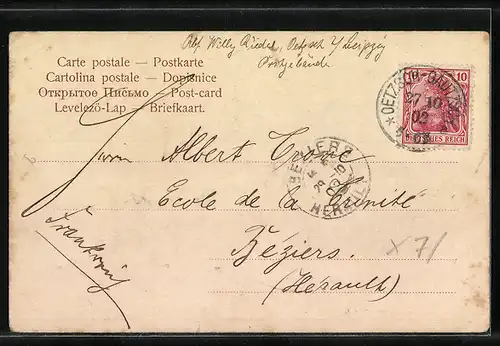 Abs. Willy Riedel, Oetzsch b/Leipzig
Postgebäude
Carte postale — Postkarte
Cartolina postale — Dopisnice
Открытое Письмо — Post-card
Levelező-Lap — Briefkaart.
10
27 10
02
REICH
Herrn Albert
Ecole de la Trinité
Béziers.
(Hérault)
Frankreich
BEZIERS
HERAULT
X 7/